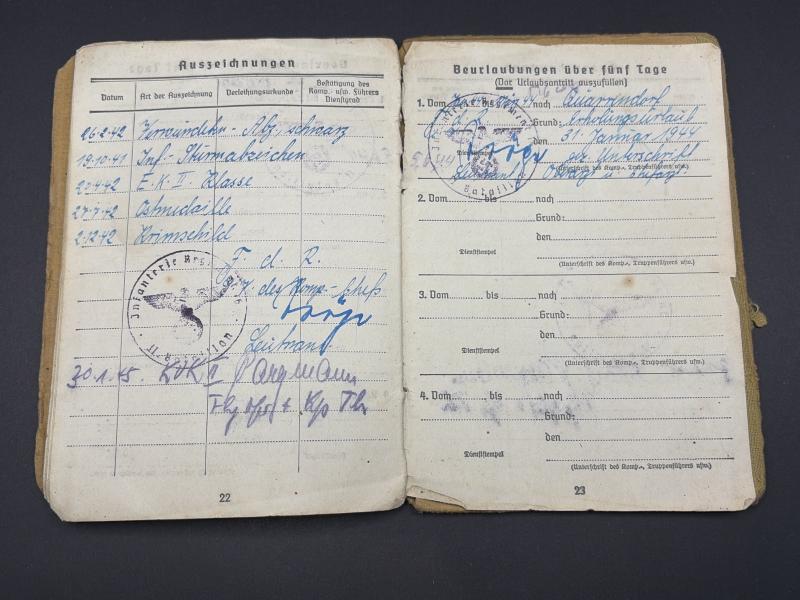 Auszeichnungen
Datum Art der Auszeichnung Verleihungsurkunde Bestätigung des Komp.- usw. Führers Dienstgrad
26.2.42 Verwundeten-Abz., schwarz
19.10.41 Inf.-Sturmabzeichen
E.K. II. Klasse
27.7.42 Ostmedaille
2.12.42 Krimschild
F. d. R.
Komp.-Chefs
Leutnant
Infanterie Regiment
II. Bataillon
30.1.45. KVK II
22
Beurlaubungen über fünf Tage
(Vor Urlaubsantritt auszufüllen)
1. Vom bis nach
Erholungsurlaub
den 31. Januar 1944
Dienststempel Unterschrift
(Unterschrift des Komp.-, Truppenführers usw.)
Leutnant
Bataillon
2. Vom bis nach
Grund:
den
Dienststempel
(Unterschrift des Komp.-, Truppenführers usw.)
3. Vom bis nach
Grund:
den
Dienststempel
(Unterschrift des Komp.-, Truppenführers usw.)
4. Vom bis nach
Grund:
den
Dienststempel
(Unterschrift des Komp.-, Truppenführers usw.)
23